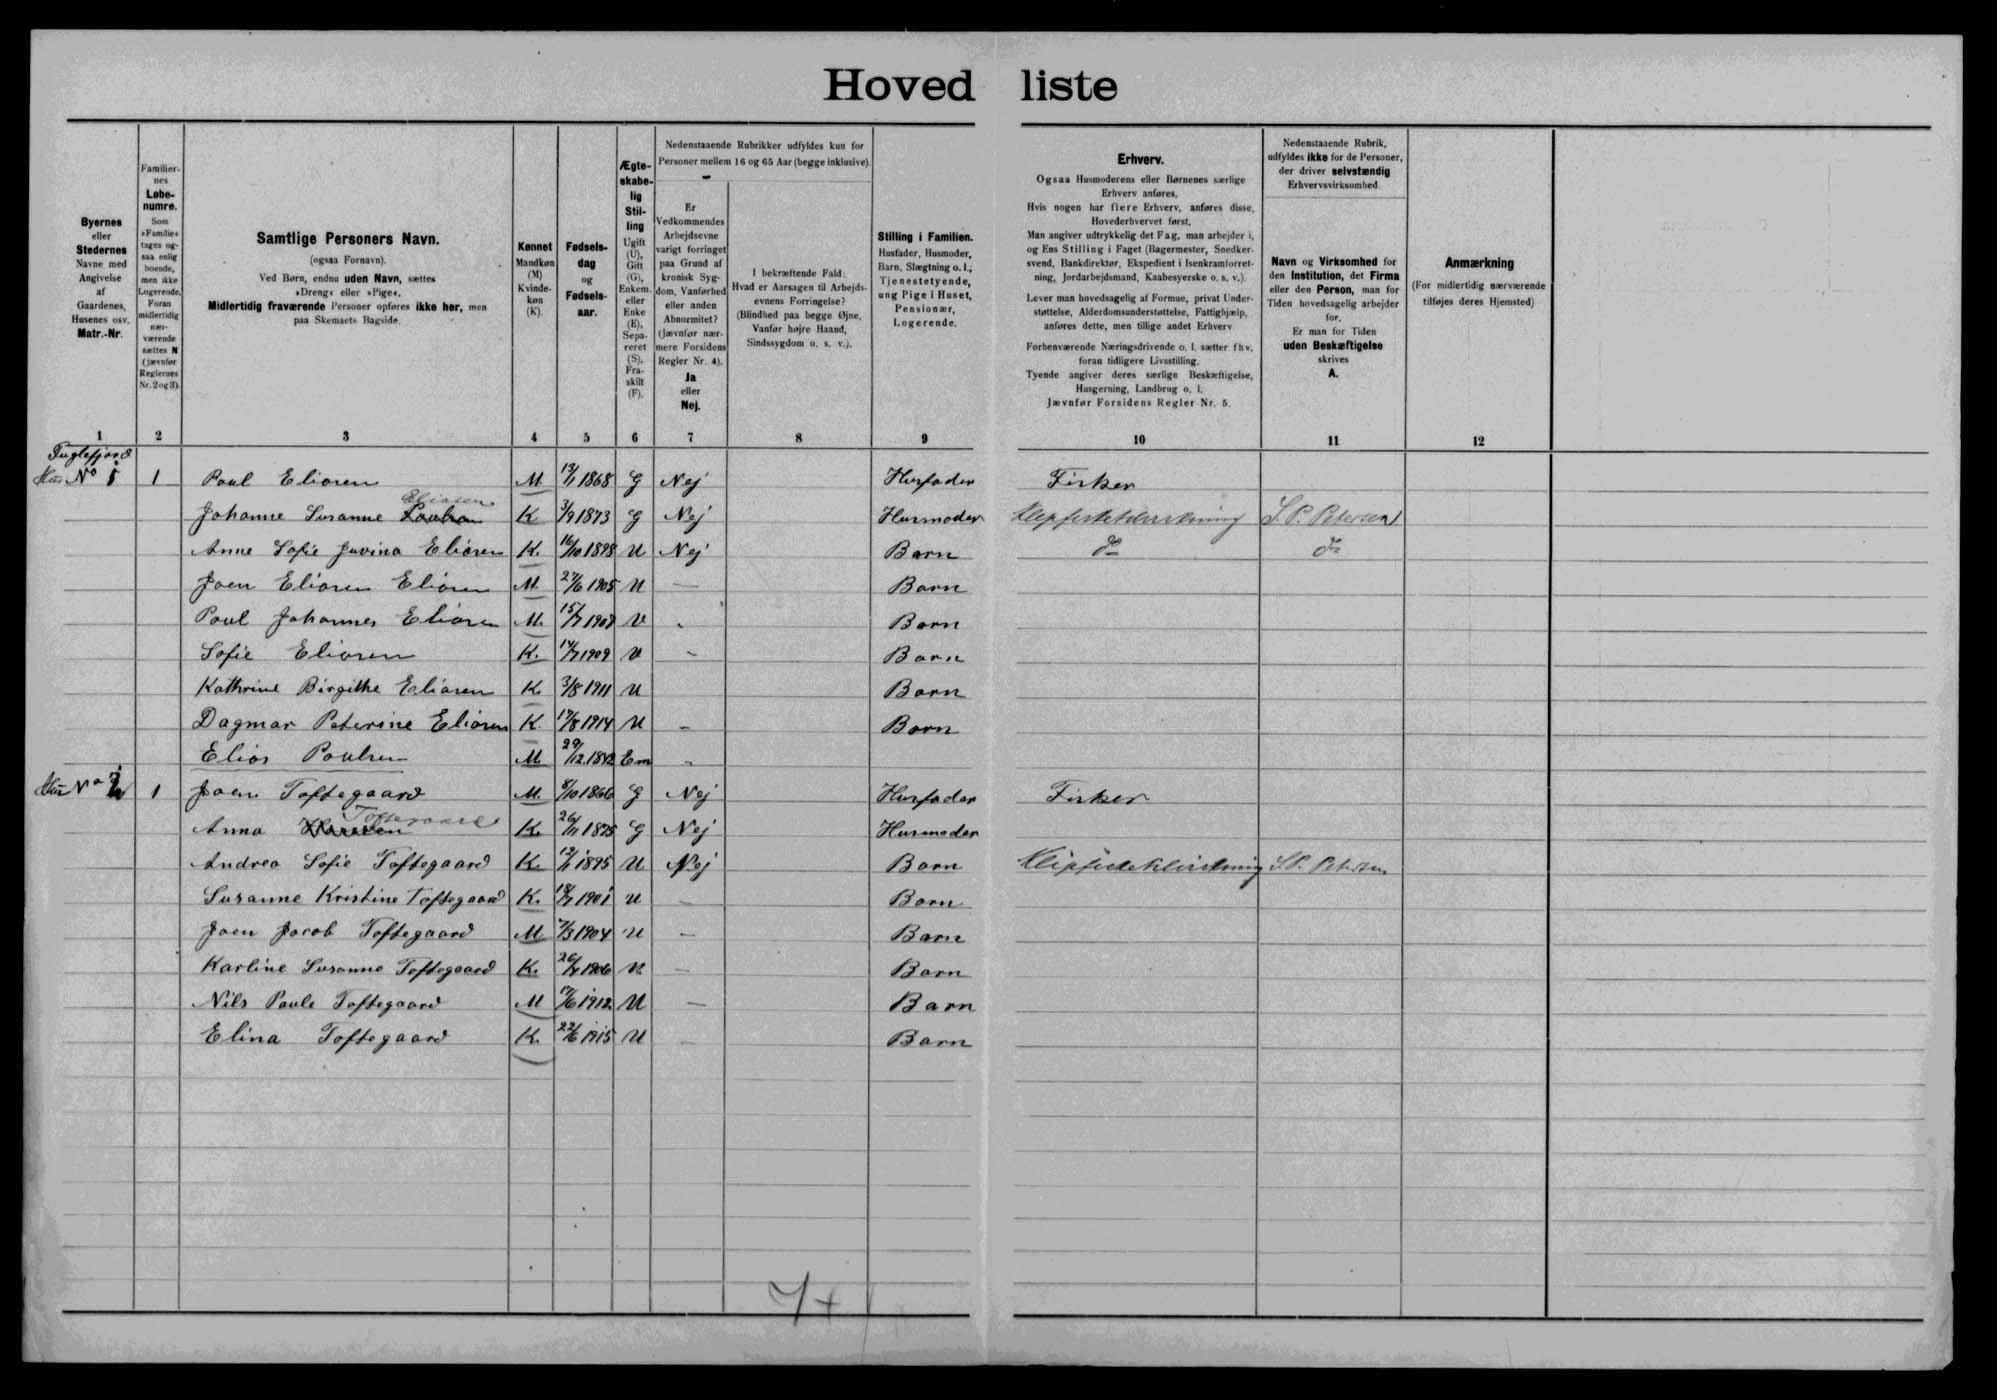 Hoved liste
Byernes
eller
Stedernes
Navne med
Angivelse
af
Gaardenes,
Husenes osv.
Matr.-Nr.
Familier-
nes
Løbe-
numre.
Som
»Familie«
tages og-
saa enlig
boende,
men ikke
Logerende.
Foran
midlertidig
nær-
værende
sættes N
(jævnfør
Reglernes
Nr. 2 og 3).
Samtlige Personers Navn.
(ogsaa Fornavn).
Ved Børn, endnu uden Navn, sættes
»Dreng« eller »Pige«.
Midlertidig fraværende Personer opføres ikke her, men
paa Skemaets Bagside.
Kønnet
Mandkøn
(M)
Kvinde-
køn
(K).
Fødsels-
dag
og
Fødsels-
aar.
Ægte-
skabe-
lig
Stil-
ling
Ugift
(U),
Gift
(G),
Enkem.
eller
Enke
(E),
Sepa-
reret
(S),
Fra-
skilt
(F).
Nedenstaaende Rubrikker udfyldes kun for
Personer mellem 16 og 65 Aar (begge inklusive).
Er
Vedkommendes
Arbejdsevne
varigt forringet
paa Grund af
kronisk Syg-
dom, Vanførhed
eller anden
Abnormitet?
(Jævnfør nær-
mere Forsidens
Regler Nr. 4).
Ja
eller
Nej.
I bekræftende Fald:
Hvad er Aarsagen til Arbejds-
evnens Forringelse?
(Blindhed paa begge Øjne,
Vanfør højre Haand,
Sindssygdom o. s. v.).
Stilling i Familien.
Husfader, Husmoder,
Barn, Slægtning o. l.;
Tjenestetyende,
ung Pige i Huset,
Pensionær,
Logerende.
Erhverv.
Ogsaa Husmoderens eller Børnenes særlige
Erhverv anføres.
Hvis nogen har flere Erhverv, anføres disse,
Hovederhvervet først.
Man angiver udtrykkelig det Fag, man arbejder i,
og Ens Stilling i Faget (Bagermester, Snedker-
svend, Bankdirektør, Ekspedient i Isenkramforret-
ning, Jordarbejdsmand, Kaabesyerske o. s. v.).
Lever man hovedsagelig af Formue, privat Under-
støttelse, Alderdomsunderstøttelse, Fattighjælp,
anføres dette, men tillige andet Erhverv
Forhenværende Næringsdrivende o. l. sætter fhv.
foran tidligere Livsstilling.
Tyende angiver deres særlige Beskæftigelse,
Husgerning, Landbrug o. l.
Jævnfør Forsidens Regler Nr. 5.
Nedenstaaende Rubrik,
udfyldes ikke for de Personer,
der driver selvstændig
Erhvervsvirksomhed
Navn og Virksomhed for
den Institution, det Firma
eller den Person, man for
Tiden hovedsagelig arbejder
for.
Er man for Tiden
uden Beskæftigelse
skrives
A.
Anmærkning
(For midlertidig nærværende
tilføjes deres Hjemsted)
1 2 3 4 5 6 7 8 9 10 11 12
Fuglefjord
Hus No 1 1 Poul Eliasen M. 13/1 1868 G Nej Husfader Fisker
Eliasen
Johanne Susanne K 3/9 1873 G Nej Husmoder Klipfiskotilvirkning S. P. Petersen
Anne Sofie Juvina Eliasen K. 16/10 1898 U Nej Barn do do
Joen Eliasen Eliasen M. 27/6 1905 U — Barn
Poul Johannes Eliasen M. 15/7 1907 U Barn
Sofie Eliasen K. 14/7 1909 U - Barn
Kathrine Birgithe Eliasen K. 3/8 1911 U Barn
Dagmar Peterine Eliasen K. 17/8 1914 U - Barn
Elias Poulsen M 29/12 1842 Em -
Hus No 2 1 Joen Toftegaard M. 8/10 1866 G Nej Husfader Fisker
Toftegaard
Anna Hansen K. 26/11 1875 G Nej Husmoder
Andrea Sofie Toftegaard K. 12/1 1895 U Nej Barn S. P. Petersen
Susanne Kristine Toftegaard K. 18/7 1901 U — Barn
Joen Jacob Toftegaard M 7/3 1904 U — Barn
Karline Susanne Toftegaard K. 1906 U — Barn
Nils Paule Toftegaard M 17/6 1912 U — Barn
Elina Toftegaard K. 22/6 1915 U — Barn
7+